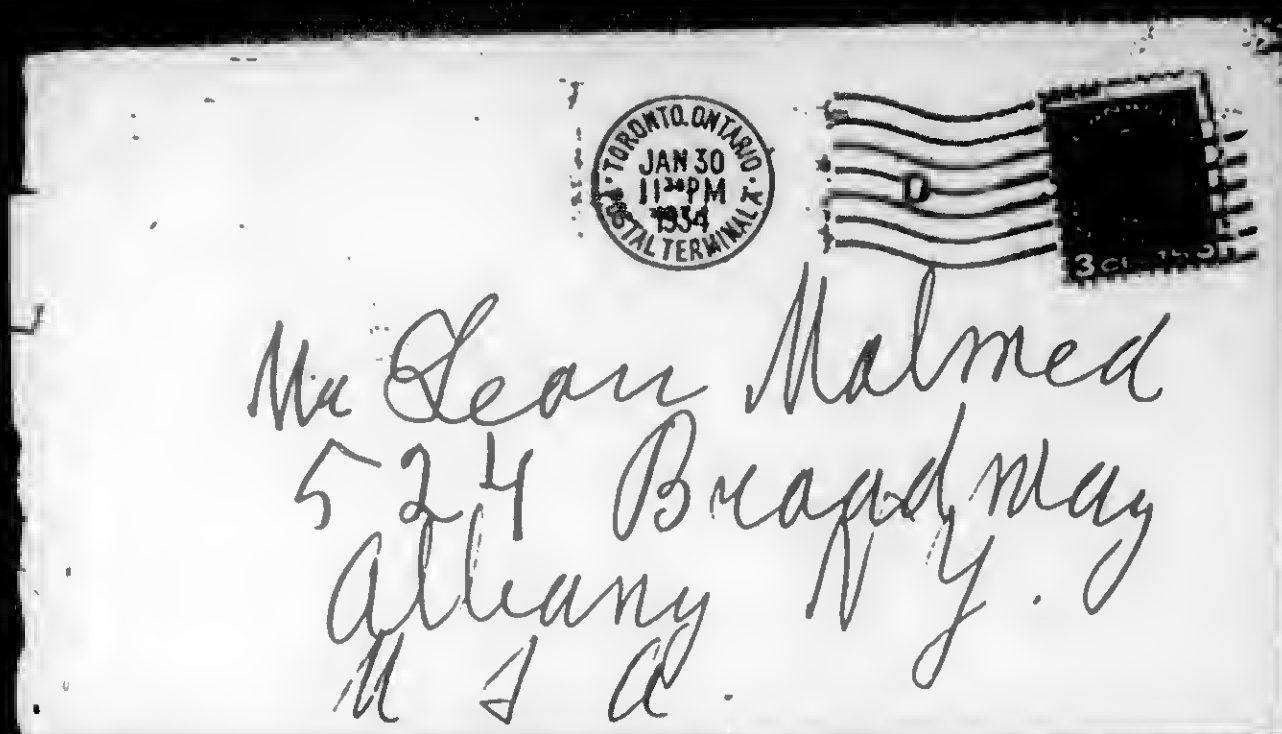 TORONTO, ONTARIO
JAN 30
11 30 PM
1934
POSTAL TERMINAL A
D
3 CENTS 3
Mr Leon Malmed
524 Broadway
Albany N Y.
U S A.